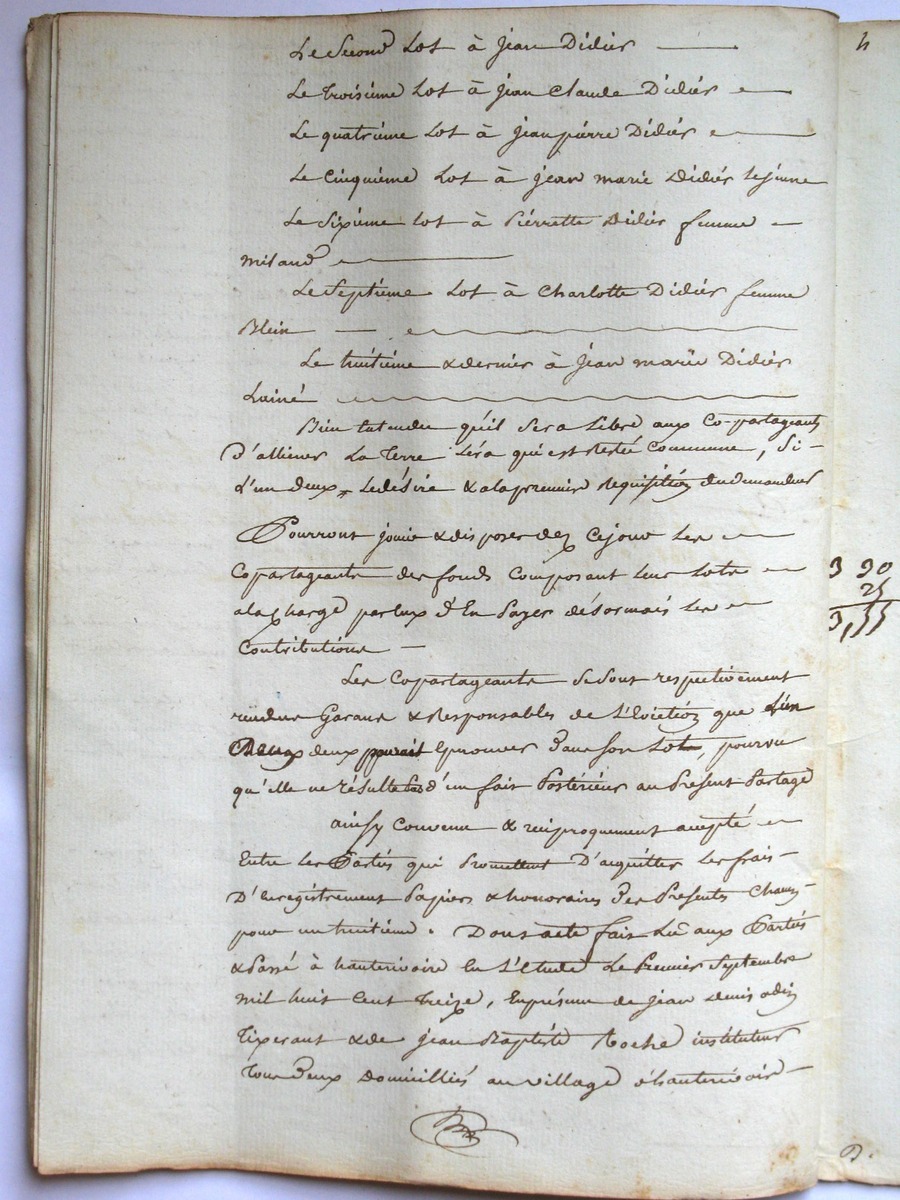 Le Second Lot à jean Didier
Le troisième Lot à jean claude Didier
Le quatrième Lot à jeanpierre Didier
Le Cinquième Lot à jean marie Didier lejeune
Le Sixième lot à Pierrette Didier femme
Milaud
Le Septième Lot à Charlotte Didier femme
Blein
Le huitième & dernier à jean marie Didier
Lainé
Bien Entendu qu'il Sera Libre aux Co-partageants
D'aliener La Terre qui est Restée Commune, Si
l'un deux Le désire & ala premiere Requisition du demandeur
Pourront jouir & disposer dez Cejour Les
Copartageants des fonds Composant leur Lots
ala Charge par Eux d'En Payer désormais Les
Contributions
Les Copartageants Se sont respectivement
rendus Garans & Responsables de L'Eviction que Lun
deux Eprouver Dans son Lot, pourvu
qu'elle ne résulte pas d'un fait Postérieur au Présent Partage
ainsy Convenu & réciproquement accepté
Entre les Parties qui Promettent D'acquitter Les frais
D'Enregistrement Papiers & honoraires Des Présentes Chacun
pour un huitième. Dont acte fait Lu aux Parties
& Passé à hauterivoire En L'Etude Le Premier Septembre
mil huit Cent Treize, En présence de jean denis
Tixerant & de jean Baptiste Roche instituteur
Tous Deux Domiciliés au village d'hauterivoire
3 90
25
B.